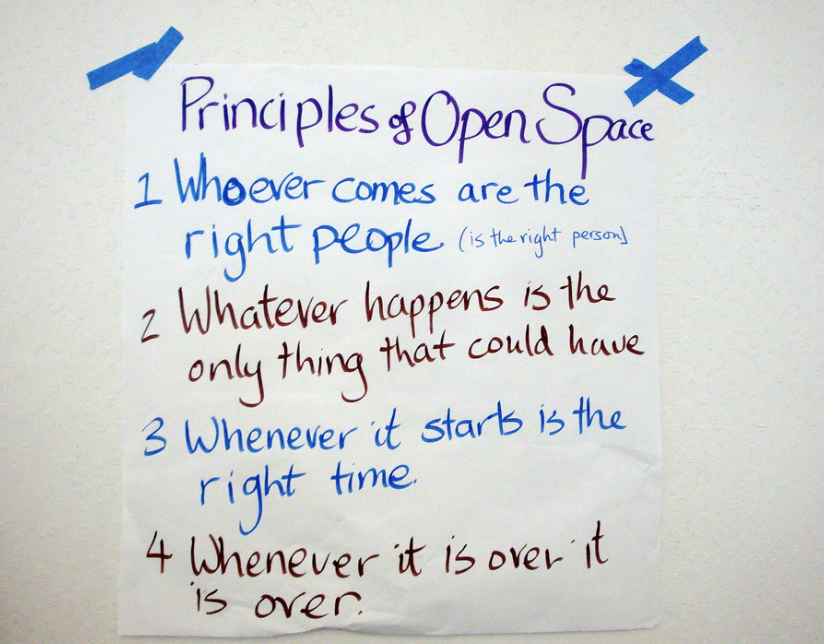 Principles of Open Space
1 Whoever comes are the
right people. (is the right person)
2 Whatever happens is the
only thing that could have
3 Whenever it starts is the
right time.
4 Whenever it is over it
is over.